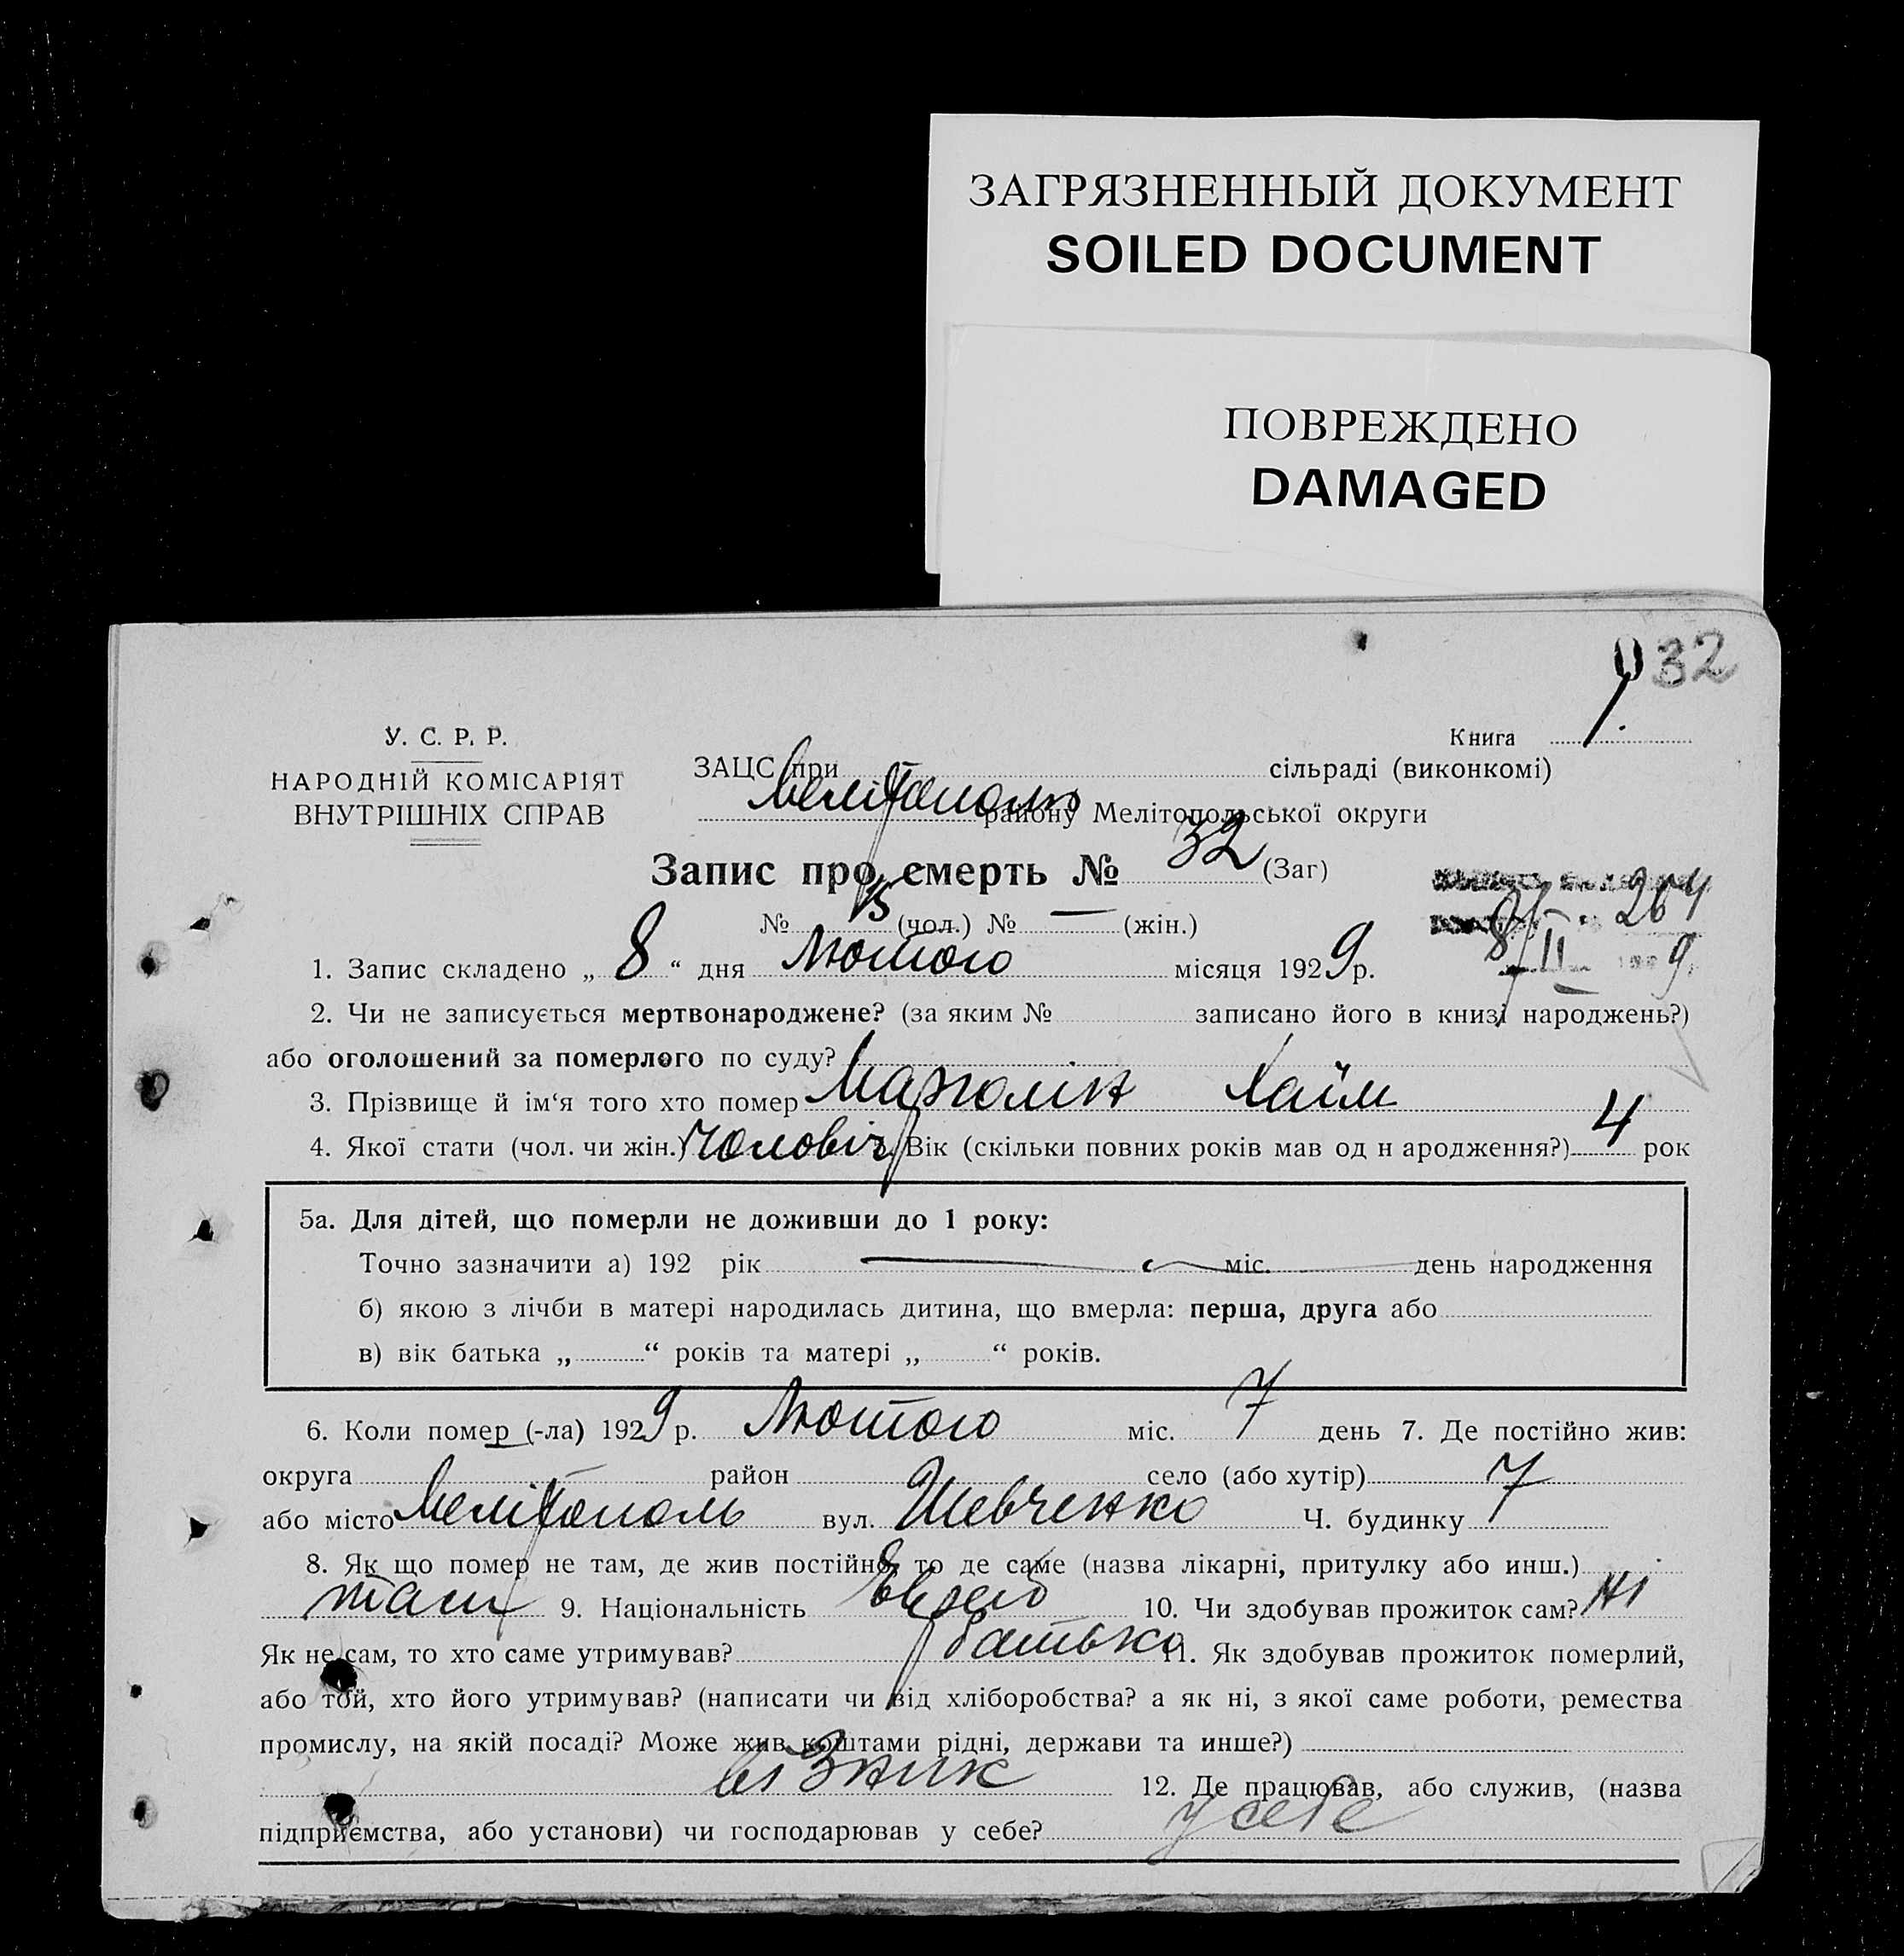 ЗАГРЯЗНЕННЫЙ ДОКУМЕНТ
SOILED DOCUMENT
ПОВРЕЖДЕНО
DAMAGED
32
У. С. Р. Р.
НАРОДНІЙ КОМІСАРІЯТ
ВНУТРІШНІХ СПРАВ
Книга 1.
ЗАЦС при сільраді (виконкомі)
району Мелітопольської округи
Запис про смерть № 32 (Заг)
№ 15 (чол.) № — (жін.)
264
8/II 1929
1. Запис складено „ 8 “ дня Лютого місяця 1929р.
2. Чи не записується мертвонароджене? (за яким № записано його в книзі народжень?)
або оголошений за померлого по суду?
3. Прізвище й ім‘я того хто помер Марголін Хаїм
4. Якої стати (чол. чи жін.) Чоловіч. Вік (скільки повних років мав од н ародження?) 4 рок
5а. Для дітей, що померли не доживши до 1 року:
Точно зазначити а) 192 рік міс. день народження
б) якою з лічби в матері народилась дитина, що вмерла: перша, друга або
в) вік батька „ “ років та матері „ “ років.
6. Коли помер (-ла) 1929р. Лютого міс. 7 день 7. Де постійно жив:
округа район село (або хутір)
або місто Мелітополь вул. Шевченко Ч. будинку 7
8. Як що помер не там, де жив постійно, то де саме (назва лікарні, притулку або инш.)
там 9. Національність Еврей 10. Чи здобував прожиток сам? ні
Як не сам, то хто саме утримував? батько 11. Як здобував прожиток померлий,
або той, хто його утримував? (написати чи від хліборобства? а як ні, з якої саме роботи, ремества
промислу, на якій посаді? Може жив коштами рідні, держави та инше?)
візник 12. Де працював, або служив, (назва
підприємства, або установи) чи господарював у себе? у себе